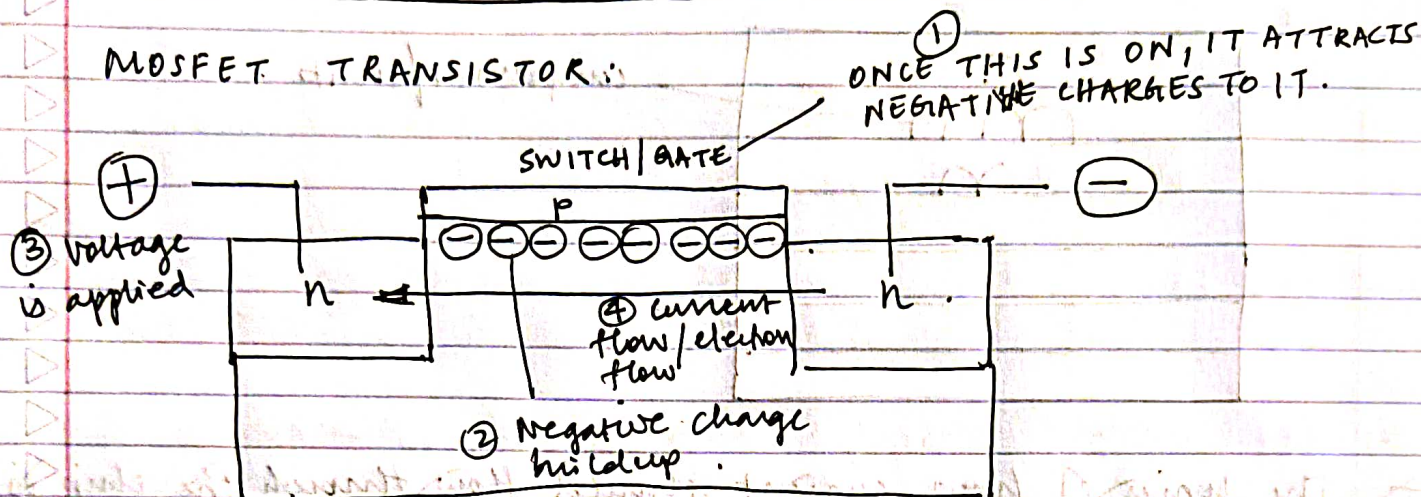 MOSFET TRANSISTOR:
① ONCE THIS IS ON, IT ATTRACTS
NEGATIVE CHARGES TO IT.
SWITCH/GATE
+
−
p
− − − − − − − −
③ Voltage
is applied
n
n
④ Current
flow/electron
flow
② Negative charge
buildup.